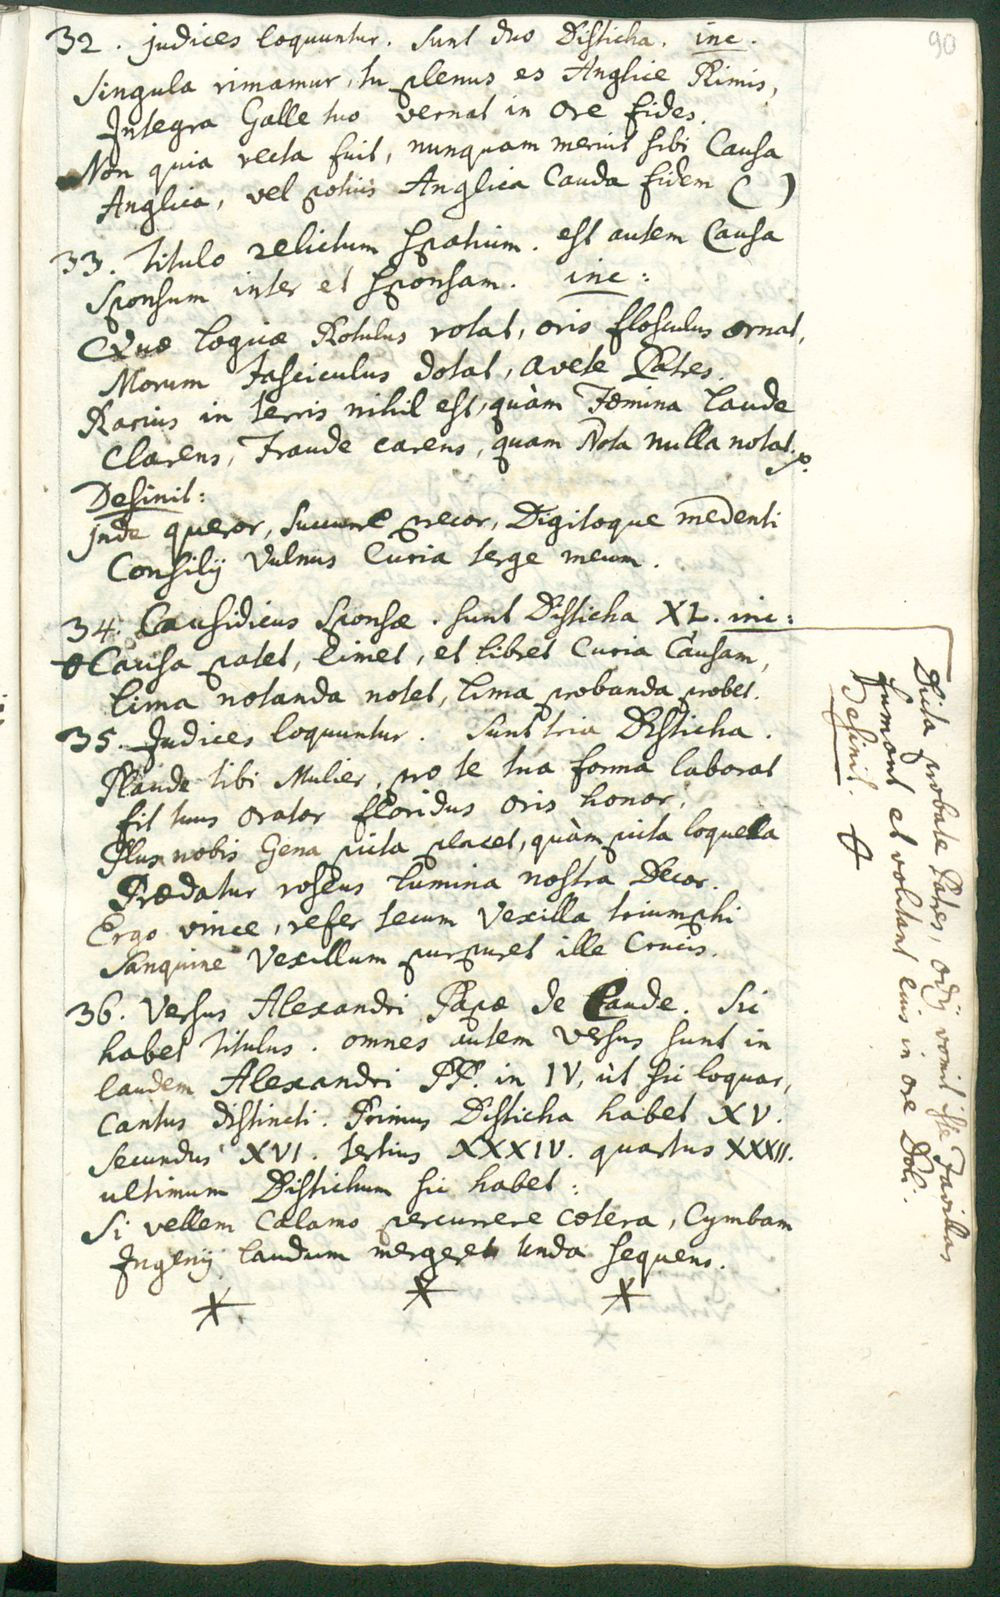 90
32. judices loquuntur. Sunt duo Disticha. inc.
Singula rimamur, tu plenus es Anglice Rimis,
Integra Galle tuo vernat in ore fides.
Non quia recta fuit, nunquam meruit sibi Causa
Anglica, vel potius Anglica Cauda fidem ( )
33. Titulo relictum spatium. est autem Causa
Sponsum inter et Sponsam. inc:
Quæ logicæ Rotulus rotat, oris flosculus ornat,
Morum Fasciculus dotat, avete Patres.
Rarius in terris nihil est, quàm Fœmina laude
Clarens, Fraude carens, quam Nota nulla notat.
Desinit:
Inde queror, succurre precor, Digitoque medenti
Consilij Vulnus Curia terge meum.
34. Causidicus Sponsæ. sunt Disticha XL. inc:
Causa patet, limet, et libret Curia Causam,
Lima notanda notet, lima probanda probet.
35. Judices loquuntur. Sunt tria Disticha.
Plaude tibi Mulier, pro te tua forma laborat
fit tuus orator floridus oris honor.
Plus nobis Gena picta placet, quàm picta loquela
Prædatur roseus lumina nostra Decor.
Ergo vince, refer tecum Vexilla triumphi
Sanquine Vexillum purpuret ille Crucis.
36. Versus Alexandri Papæ de Laude. Sic
habet titulus. omnes autem versus sunt in
laudem Alexandri PP. in IV, ùt sic loquar,
Cantus distincti. Primus Disticha habet XV.
Secundus XVI. tertius XXXIV. quartus XXXII.
ultimum Distichum sic habet:
Si vellem Calamo percurrere cætera, Cymbam
Ingenij laudum mergeret unda sequens.
* * *
Dicta probate Patres, odij vomit iste Favillas
fumant et volitant eius in ore Doli.
Desinit.